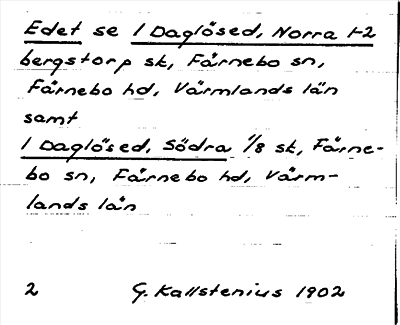 Edet se 1 Daglösed, Norra 1-2
bergstorp sk, Färnebo sn,
Färnebo hd, Värmlands län
samt
1 Daglösed, Södra 1/8 sk, Färne-
bo sn, Färnebo hd, Värm-
lands län
2 G. Kallstenius 1902